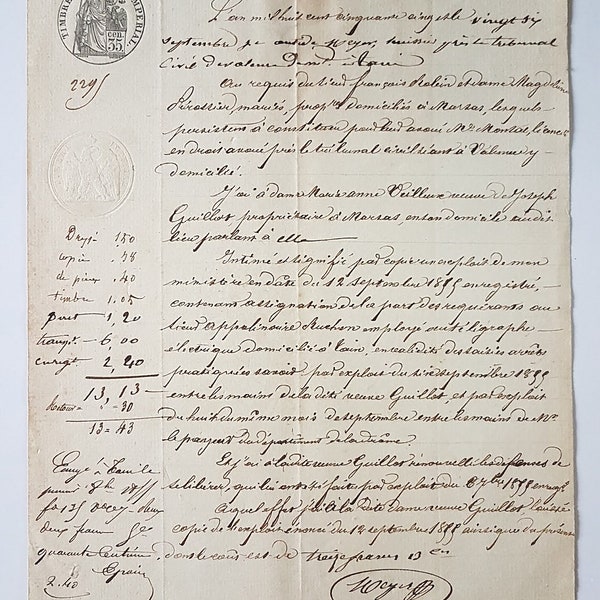 TIMBRE IMPERIAL
35 cen.
L'an mil huit cent cinquante cinq et le vingt six
septembre je André Meyer, huissier près le tribunal
Civil de Valence demt à Tain
2295
Au requis du sieur françois Robin et dame Magdeleine
mariés, proprres domiciliés à Marsas, lesquels
persistent à constituer pour leur avoué Me Montal, licencié
en droit avoué près le tribunal civil séant à Valence y
domicilié.
J'ai à dame Marie anne Veilleux veuve de Joseph
Guillot propriétaire à Marsas, en son domicile audit
lieu parlant à elle
Intimé et signifié par copie un exploit de mon
ministère en date du 12 septembre 1855 enregistré,
contenant assignation de la part des requérants au
sieur appolinaire Ruchon employé au télégraphe
électrique domicilié à Tain, en validité des saisies arrêts
pratiquées savoir par exploit du six septembre 1855
entre les mains de la dite veuve Guillot et par exploit
du huit du même mois de septembre entre les mains de Mr
le payeur du département de la drôme
Et j'ai à la dite veuve Guillot renouvellé les défenses de
se libérer, qui lui ont été faites par exploit du 6 7bre 1855 enregt
A quel effet j'ai à la dite dame veuve Guillot laissé
copie de l'exploit énoncé du 12 septembre 1855 ainsi que du présent
dont le coût est de treize francs 13 cen
Meyer
1,50
copie .38
de pièces .40
timbre 1,05
1,20
transpt 6,00
enregt 2,40
13,13
30
13=43
à Tain le
8bre 1855
fo 125
deux francs
quarante centimes
2.40